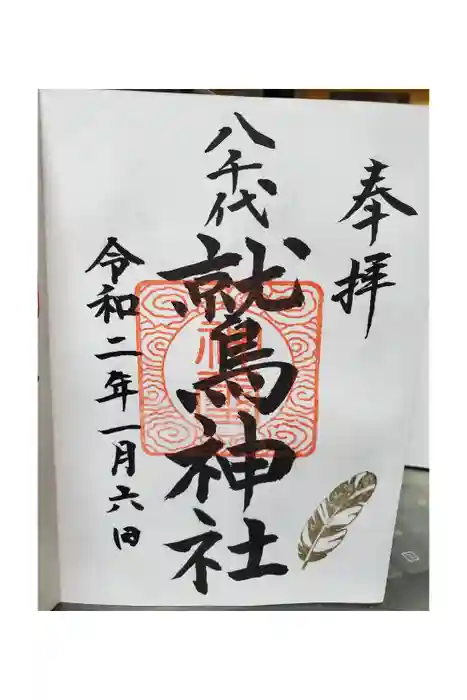 奉拝
八千代
鷲神社
令和二年一月六日